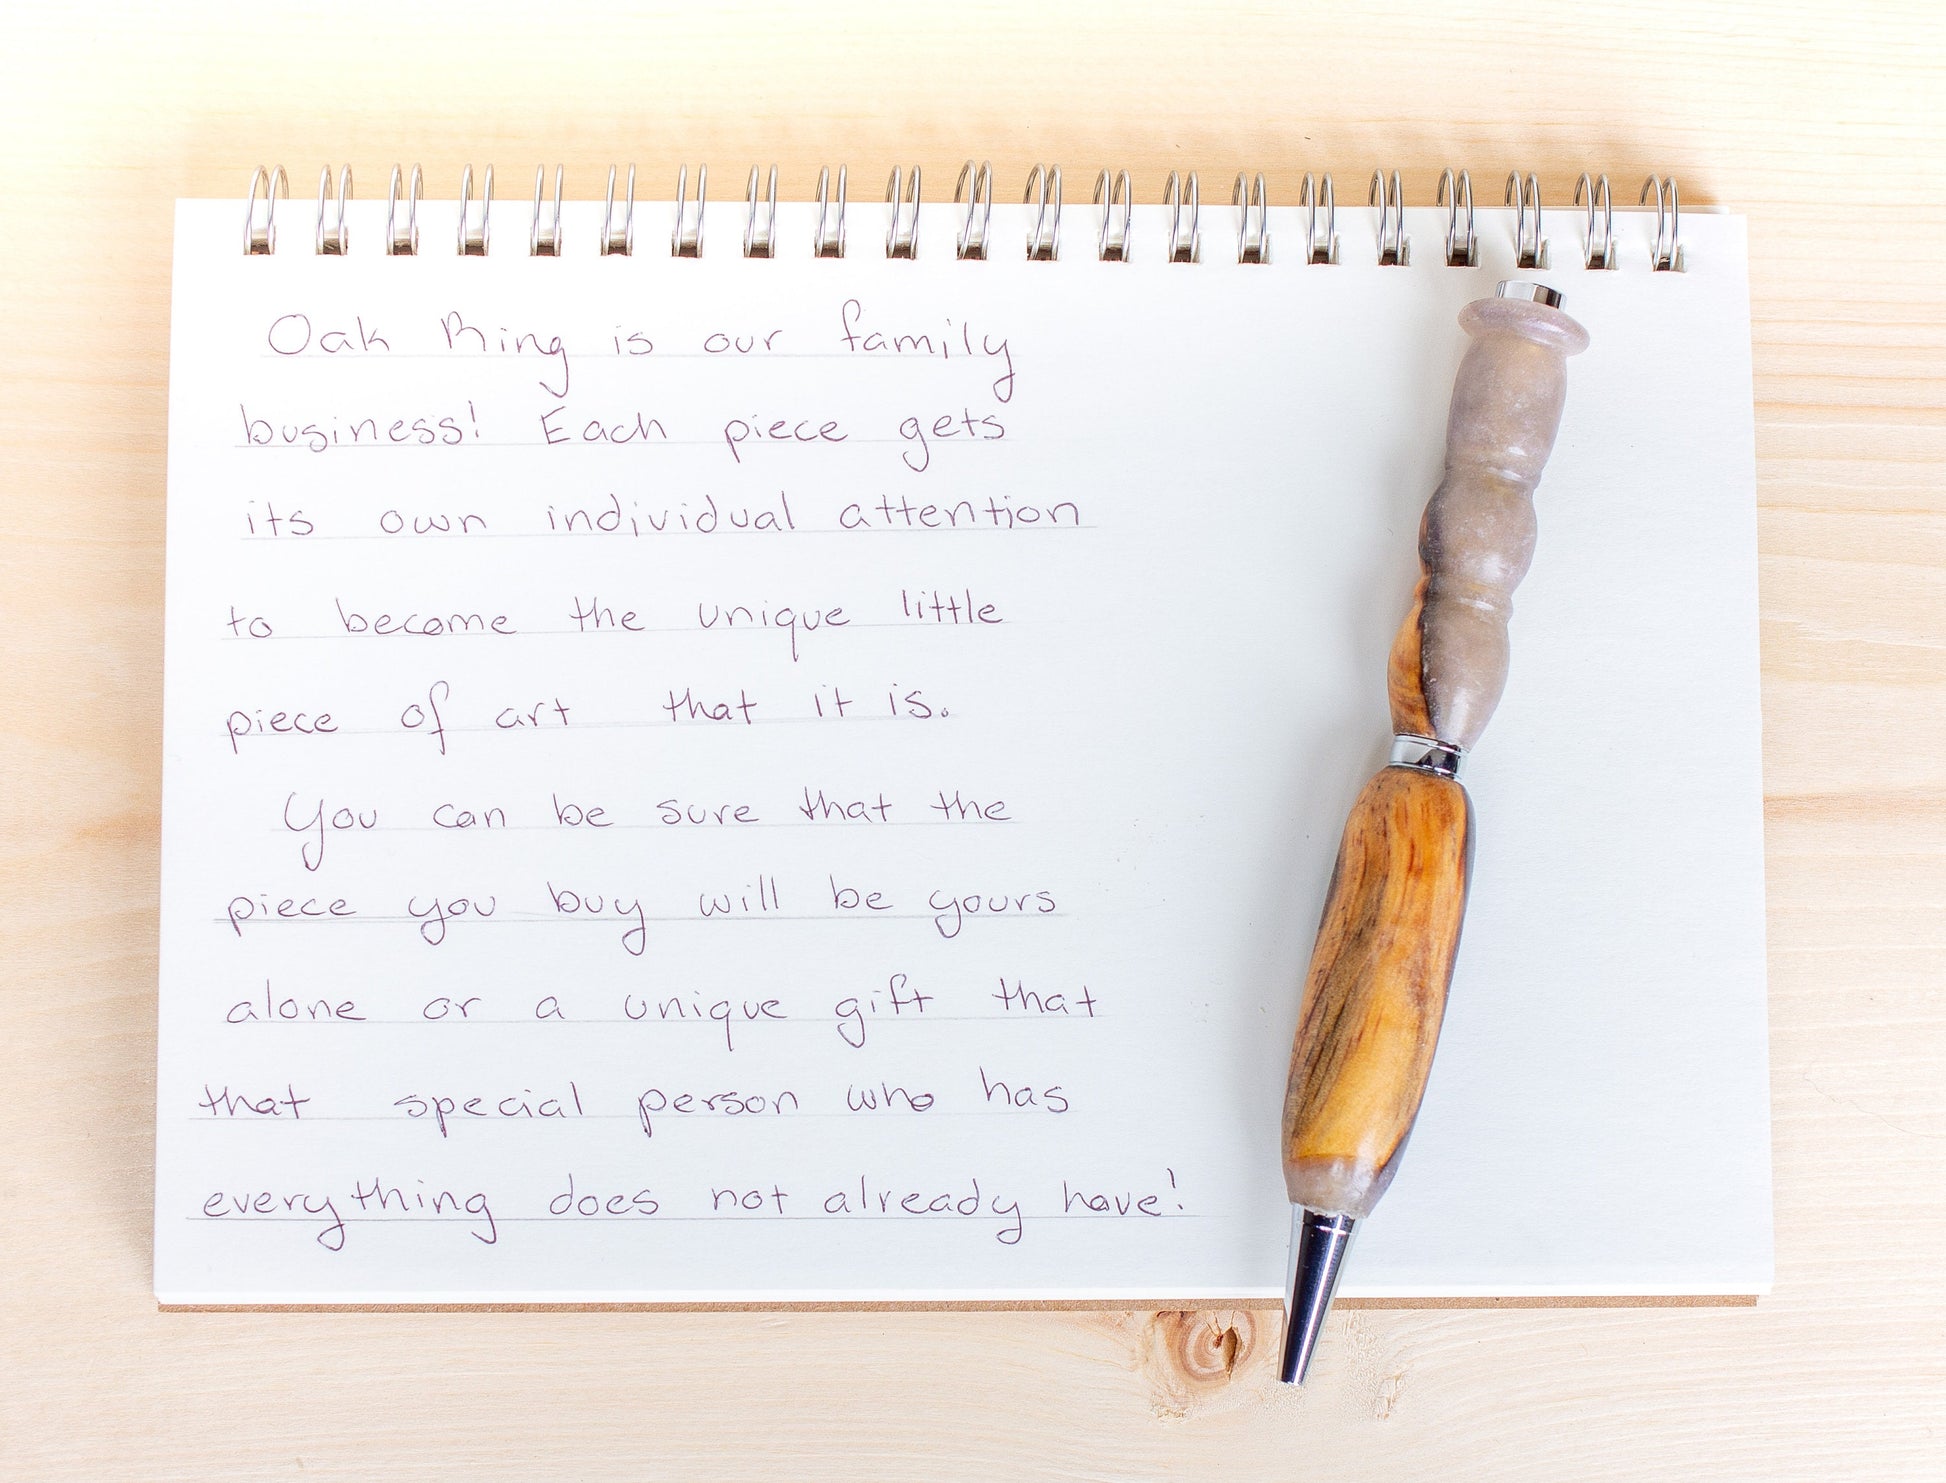 Oak Ring is our family
business! Each piece gets
its own individual attention
to become the unique little
piece of art that it is.
You can be sure that the
piece you buy will be yours
alone or a unique gift that
that special person who has
everything does not already have!